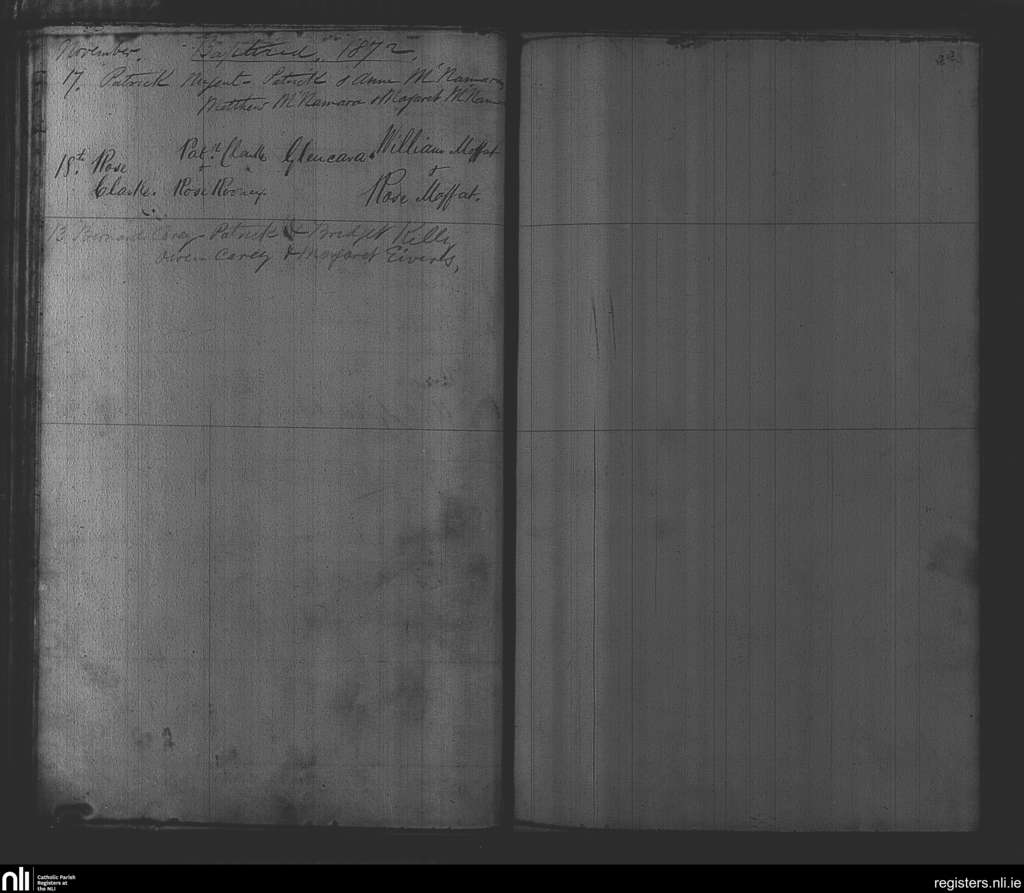 November. Baptized, 1872,
17. Patrick Nugent - Patrick & Anne McNamara
Matthew McNamara & Margaret McNam
18th. Rose Clarke. Patt. Clarke + Rose Rooney. Glencara. William Moffat + Rose Moffat.
13 Bernard Carey - Patrick & Bridget Kelly
Owen Carey & Margaret
nli Catholic Parish
Registers at
the NLI
registers.nli.ie